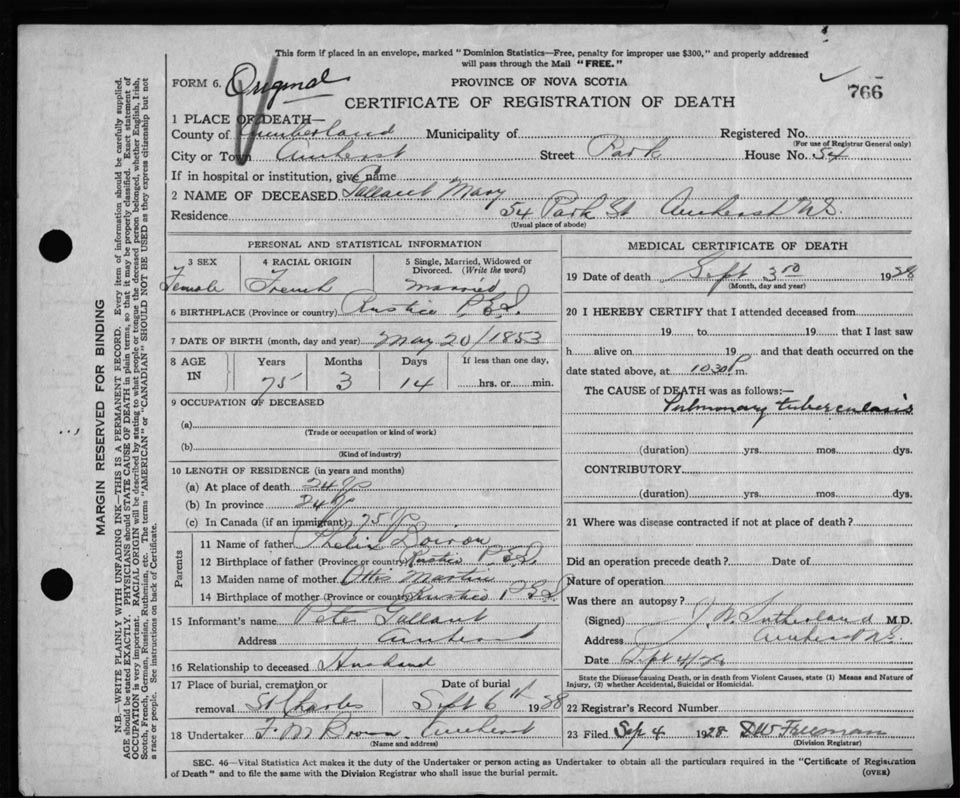 This form if placed in an envelope, marked "Dominion Statistics—Free, penalty for improper use $300," and properly addressed
will pass through the Mail "FREE."
FORM 6. Original
PROVINCE OF NOVA SCOTIA
766
CERTIFICATE OF REGISTRATION OF DEATH
1 PLACE OF DEATH—
County of Cumberland Municipality of Registered No.
(For use of Registrar General only)
City or Town Amherst Street Park House No. 54
If in hospital or institution, give name
2 NAME OF DECEASED Gallant Mary
Residence 54 Park St Amherst N.S.
(Usual place of abode)
PERSONAL AND STATISTICAL INFORMATION
3 SEX 4 RACIAL ORIGIN 5 Single, Married, Widowed or
Divorced. (Write the word)
Female French Married
6 BIRTHPLACE (Province or country) Rustico P.E.I.
7 DATE OF BIRTH (month, day and year) May 20/1853
8 AGE IN Years Months Days If less than one day,
75 3 14 hrs. or min.
9 OCCUPATION OF DECEASED
(a)
(Trade or occupation or kind of work)
(b)
(Kind of industry)
10 LENGTH OF RESIDENCE (in years and months)
(a) At place of death 24 yrs
(b) In province 24 yrs
(c) In Canada (if an immigrant) 75 yrs
Parents
11 Name of father Phelix Doiron
12 Birthplace of father (Province or country) Rustico P.E.I.
13 Maiden name of mother Martin
14 Birthplace of mother (Province or country) Rustico P.E.I.
15 Informant's name Peter Gallant
Address Amherst
16 Relationship to deceased Husband
17 Place of burial, cremation or Date of burial
removal St Charles Sept 6th 1928
18 Undertaker F. M. Brown Amherst
(Name and address)
MEDICAL CERTIFICATE OF DEATH
19 Date of death Sept 3rd 1928
(Month, day and year)
20 I HEREBY CERTIFY that I attended deceased from
19 to 19 that I last saw
h alive on 19 and that death occurred on the
date stated above, at 10.30 P m.
The CAUSE of DEATH was as follows:—
Pulmonary tuberculosis
(duration) yrs. mos. dys.
CONTRIBUTORY
(duration) yrs. mos. dys.
21 Where was disease contracted if not at place of death?
Did an operation precede death? Date of
Nature of operation
Was there an autopsy?
(Signed) J. W. Sutherland M.D.
Address Amherst N.S.
Date Sept 4/28
State the Disease causing Death, or in death from Violent Causes, state (1) Means and Nature of
Injury, (2) whether Accidental, Suicidal or Homicidal.
22 Registrar's Record Number
23 Filed Sep 4 1928 D W Freeman
(Division Registrar)
SEC. 46—Vital Statistics Act makes it the duty of the Undertaker or person acting as Undertaker to obtain all the particulars required in the "Certificate of Registration
of Death" and to file the same with the Division Registrar who shall issue the burial permit. (OVER)
MARGIN RESERVED FOR BINDING
N.B. WRITE PLAINLY WITH UNFADING INK—THIS IS A PERMANENT RECORD. Every item of information should be carefully supplied.
AGE should be stated EXACTLY. PHYSICIANS should STATE CAUSE OF DEATH in plain terms, so that it may be properly classified. Exact statement of
OCCUPATION is very important. RACIAL ORIGIN will be described by stating to what people or tongue the deceased person belonged, whether English, Irish,
Scotch, French, German, Russian, Ruthenian, etc. The terms "AMERICAN" or "CANADIAN" SHOULD NOT BE USED as they express citizenship but not
a race or people. See instructions on back of Certificate.